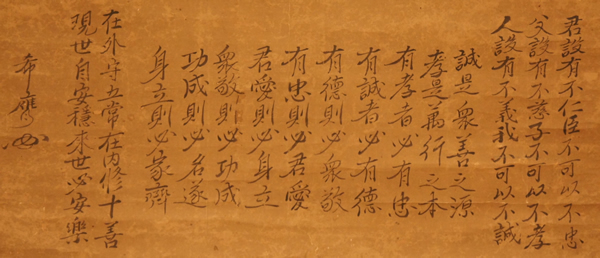 君設有不仁臣不可以不忠
父設有不慈子不可以不孝
人設有不義我不可以不誠
誠是衆善之源
孝是萬行之本
有孝者必有忠
有誠者必有德
有德則必衆敬
有忠則必君愛
君愛則必身立
衆敬則必功成
功成則必名遂
身立則必家齊
在外守五常在内修十善
現世自安穩未世必安樂